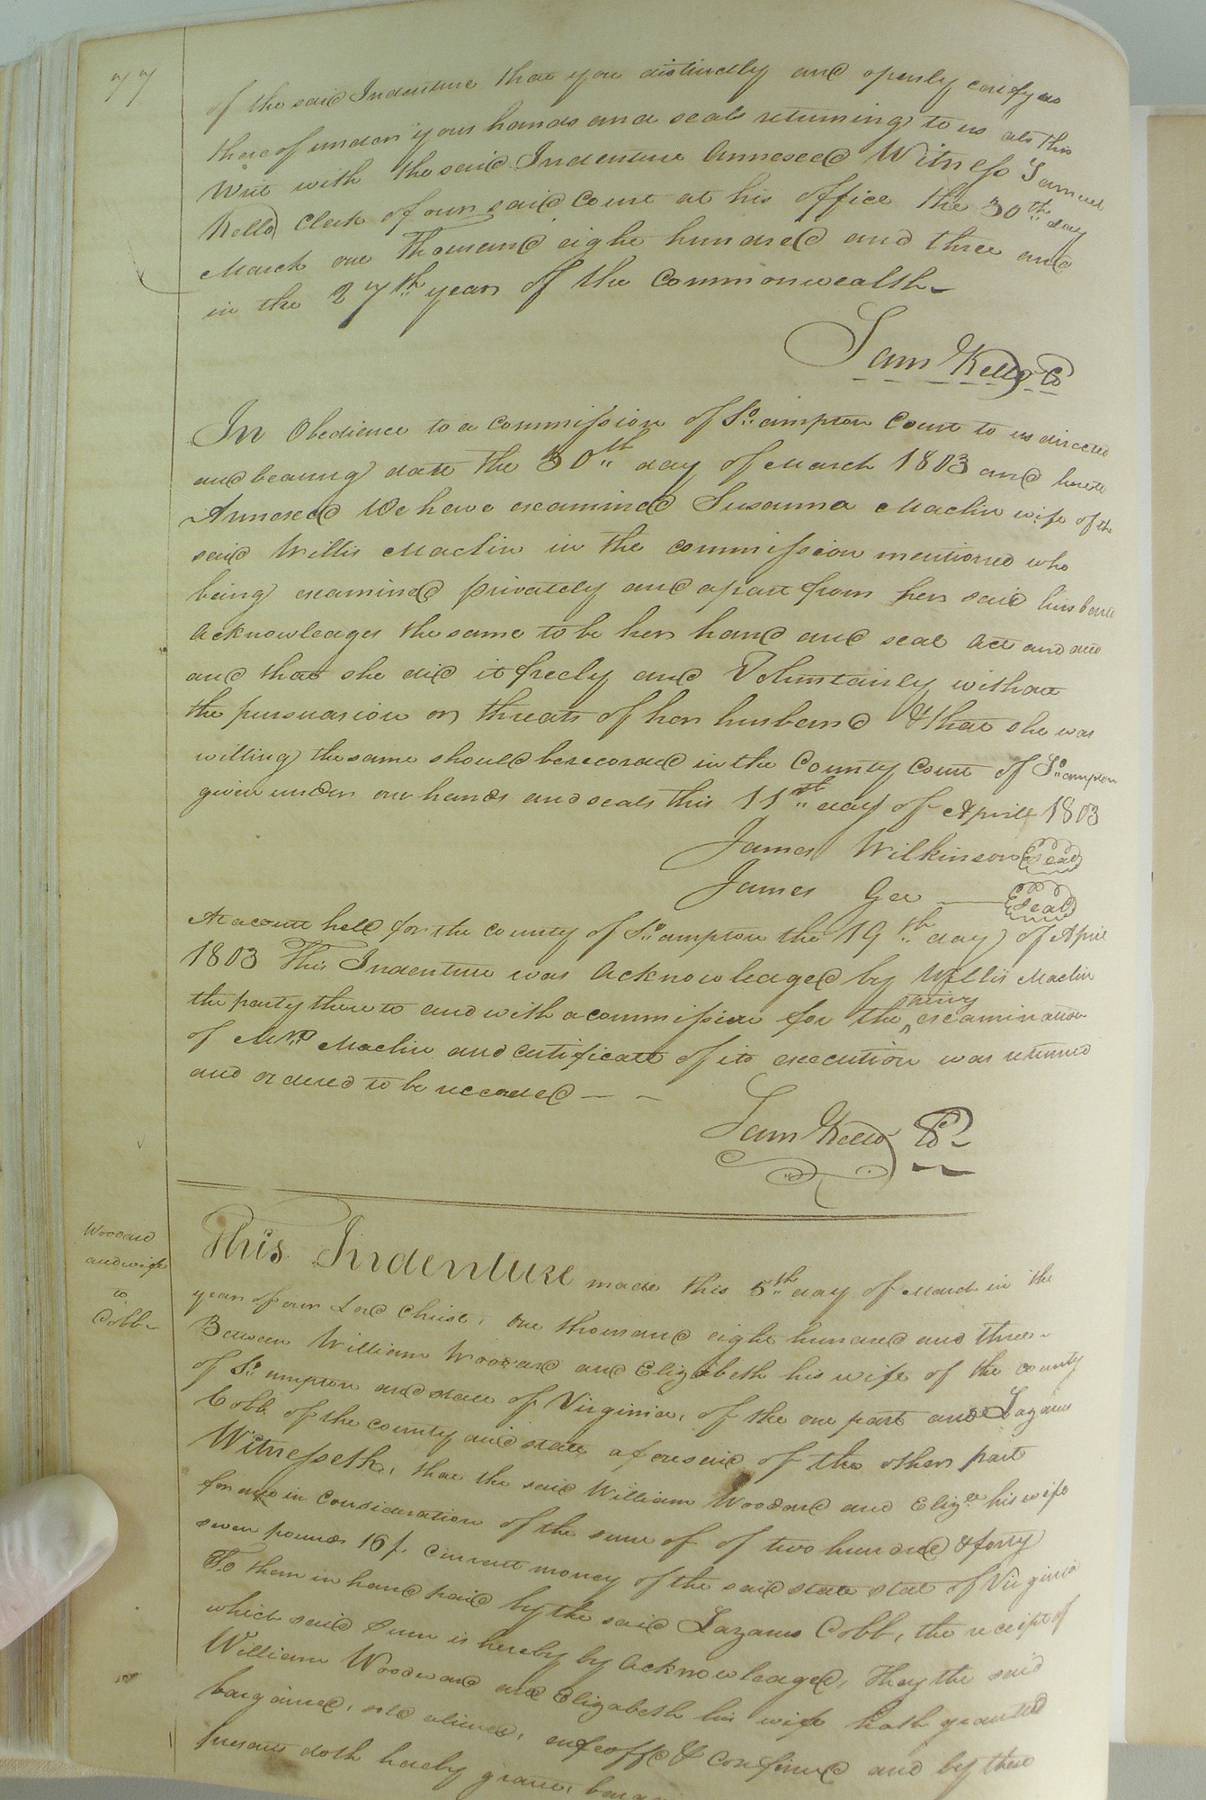 77
of the said Indenture that you distinctly and openly certify us
thereof under your hands and seals returning to us also this
Writ with the said Indenture Annexed Witness Samuel
Kello Clerk of our said Court at his office the 30th day
March one Thousand eight hundred and three and
in the 27th year of the Commonwealth
Sam Kello CC
In Obedience to a Commission of So.ampton Court to us directed
and bearing date the 30th day of March 1803 and hereto
Annexed We have examined Susanna Maclin wife of the
said Willis Maclin in the commission mentioned who
being examined privately and apart from her said husband
Acknowledges the same to be her hand and seal Act and deed
and that she did it freely and Voluntarily without
the pursuasion or threats of her husband & that she was
willing the same should be recorded in the County Court of So.ampton
given under our hands and seals this 11th day of April 1803
James Wilkinson Seal
James Gee Seal
At a court held for the county of So.ampton the 19th day of April
1803 This Indenture was Acknowledged by Willis Maclin
the party thereto and with a commission for the privy examination
of Mrs Maclin and certificate of its execution was returned
and ordered to be recorded
Sam Kello CC
Woodard
and wife
to
Cobb
This Indenture made this 5th day of March in the
year of our Lord Christ, one thousand eight hundred and three
Between William Woodard and Elizabeth his wife of the county
of So.ampton and state of Virginia, of the one part and Lazarus
Cobb of the county and state aforesaid of the other part
Witnesseth, that the said William Woodard and Eliza. his wife
for and in Consideration of the sum of of two hundred & forty
seven pounds 16/. Current money of the said state state of Virginia
To them in hand paid by the said Lazarus Cobb, the receipt of
which said Sum is hereby by Acknowledged, they the said
William Woodward and Elizabeth his wife hath granted
bargained, sold aliened, enfeoff'd & Confirmed and by these
presents doth hereby grant,